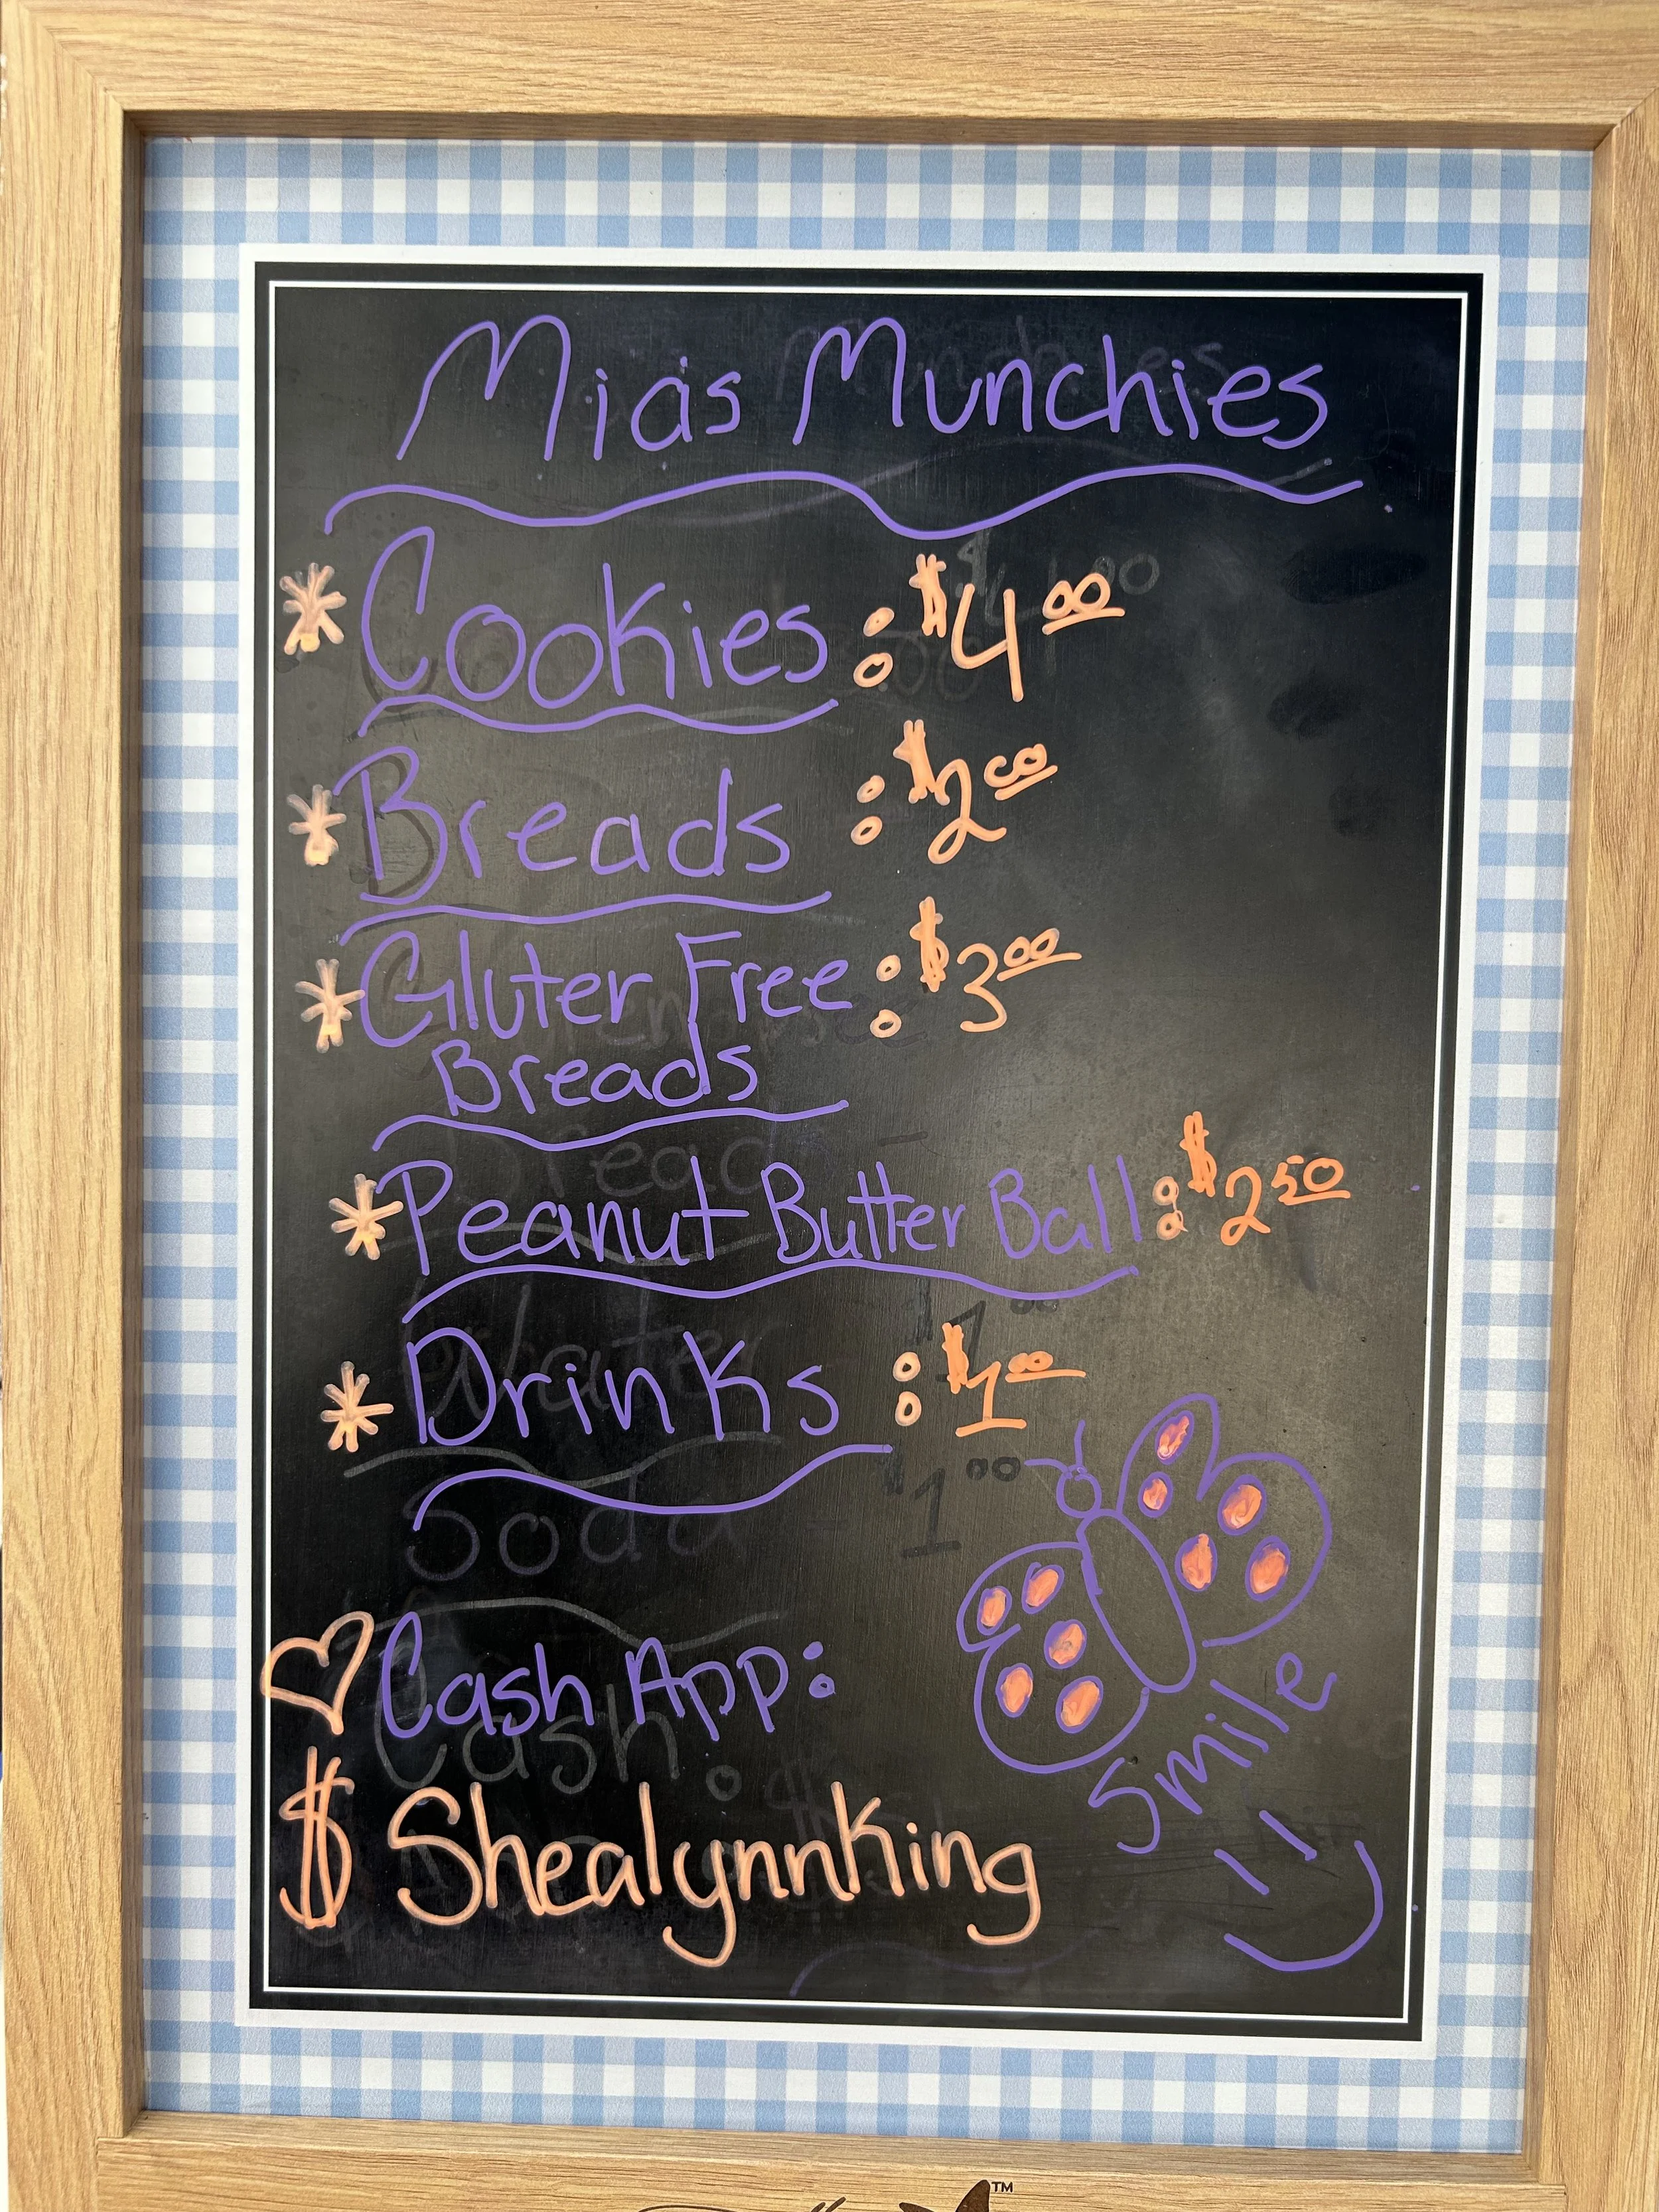 Mia's Munchies
* Cookies : $4.00
* Breads : $2.00
* Gluter Free : $3.00
Breads
* Peanut Butter Ball : $2.50
* Drinks : $1.00
Cash App:
$ShealynnKing
Smile
TM